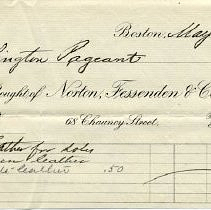 Boston, May
ington Pageant
ought of Norton, Fessenden & C
68 Chauncy Street.
Leather for soles
leather
leather .50